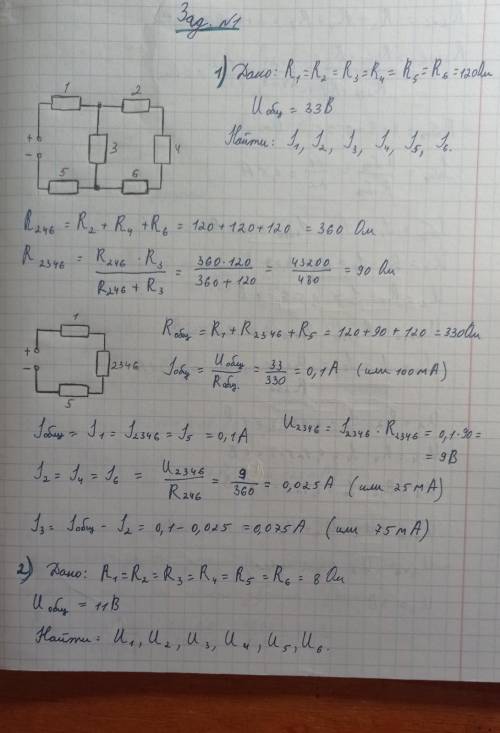 Зад. №1
1) Дано: R₁=R₂=R₃=R₄=R₅=R₆=120Ом
Uобщ = 33В
Найти: I₁, I₂, I₃, I₄, I₅, I₆.
1 2
+ 3 4
−
5 6
R₂₄₆ = R₂ + R₄ + R₆ = 120 + 120 + 120 = 360 Ом
R₂₃₄₆ = (R₂₄₆ · R₃)/(R₂₄₆ + R₃) = (360·120)/(360 + 120) = 43200/480 = 90 Ом
1
+ 2346
−
5
Rобщ = R₁ + R₂₃₄₆ + R₅ = 120 + 90 + 120 = 330Ом
Iобщ = Uобщ/Rобщ. = 33/330 = 0,1А (или 100мА)
Iобщ = I₁ = I₂₃₄₆ = I₅ = 0,1А
U₂₃₄₆ = I₂₃₄₆ · R₂₃₄₆ = 0,1·90 =
= 9В
I₂ = I₄ = I₆ = U₂₃₄₆/R₂₄₆ = 9/360 = 0,025А (или 25мА)
I₃ = Iобщ − I₂ = 0,1 − 0,025 = 0,075А (или 75мА)
2) Дано: R₁=R₂=R₃=R₄=R₅=R₆ = 8 Ом
Uобщ = 11В
Найти: U₁, U₂, U₃, U₄, U₅, U₆.